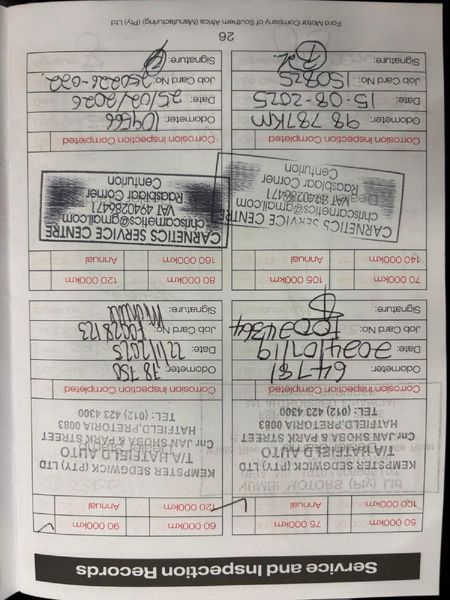 Service and Inspection Records
50 000km 75 000km
100 000km Annual
NUMBI MOTORS (Pty) Ltd
KEMPSTER SEDGWICK (PTY) LTD
T/A HATFIELD AUTO
Cnr JAN SHOBA & PARK STREET
HATFIELD, PRETORIA 0083
TEL: (012) 423 4300
Corrosion Inspection Completed
Odometer: 64781
Date:
Job Card No:
Signature:
60 000km 90 000km
120 000km Annual
KEMPSTER SEDGWICK (PTY) LTD
T/A HATFIELD AUTO
Cnr JAN SHOBA & PARK STREET
HATFIELD, PRETORIA 0083
TEL: (012) 423 4300
Corrosion Inspection Completed
Odometer: 78 150
Date:
Job Card No:
Signature:
70 000km 105 000km
140 000km Annual
CARNETICS SERVICE CENTRE
chriscarnetics@gmail.com
VAT 4940286471
Raasblaar Corner
Centurion
Corrosion Inspection Completed
Odometer: 98 787km
Date: 15-08-2025
Job Card No: 150825
Signature:
80 000km 120 000km
160 000km Annual
CARNETICS SERVICE CENTRE
chriscarnetics@gmail.com
VAT 4940286471
Raasblaar Corner
Centurion
Corrosion Inspection Completed
Odometer: 109566
Date: 25/02/2026
Job Card No: 250226-022
Signature:
26
Ford Motor Company of Southern Africa (Manufacturing) (Pty) Ltd